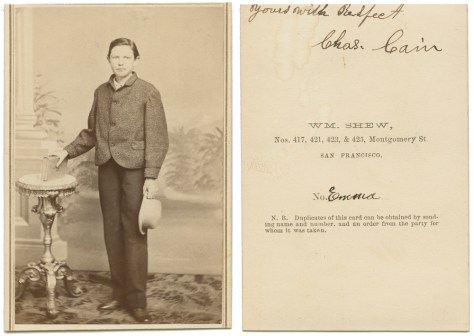 Yours with Respect
Chas. Cain
WM. SHEW,
Nos. 417, 421, 423, & 425, Montgomery St
SAN FRANCISCO.
No. Emma
N. B. Duplicates of this card can be obtained by send-
ing name and number, and an order from the party for
whom it was taken.